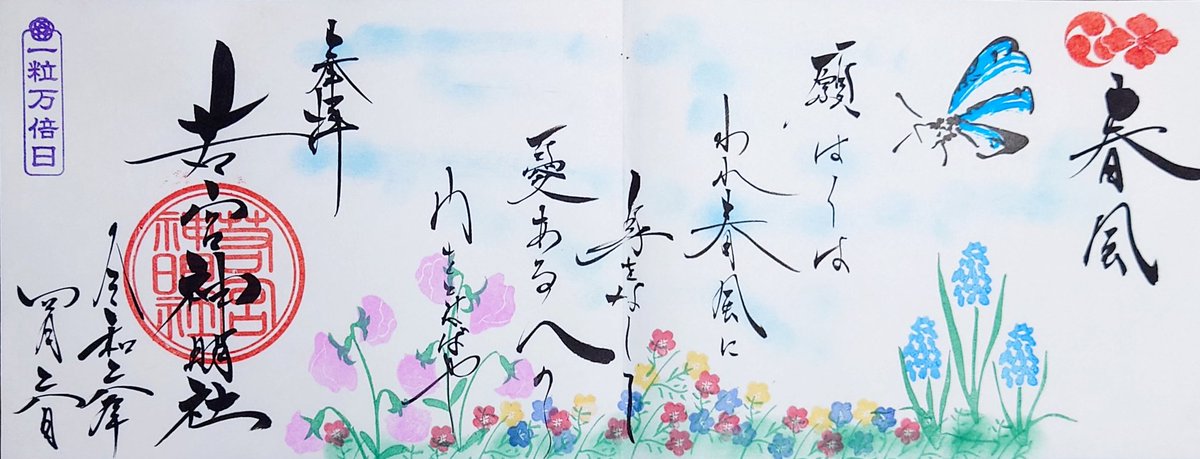 春風
願はくは
われ春風に
身をなして
憂ある人の
門をとはばや
奉拝
若宮神明社
若宮
神明社
令和二年
四月二日
一粒万倍日